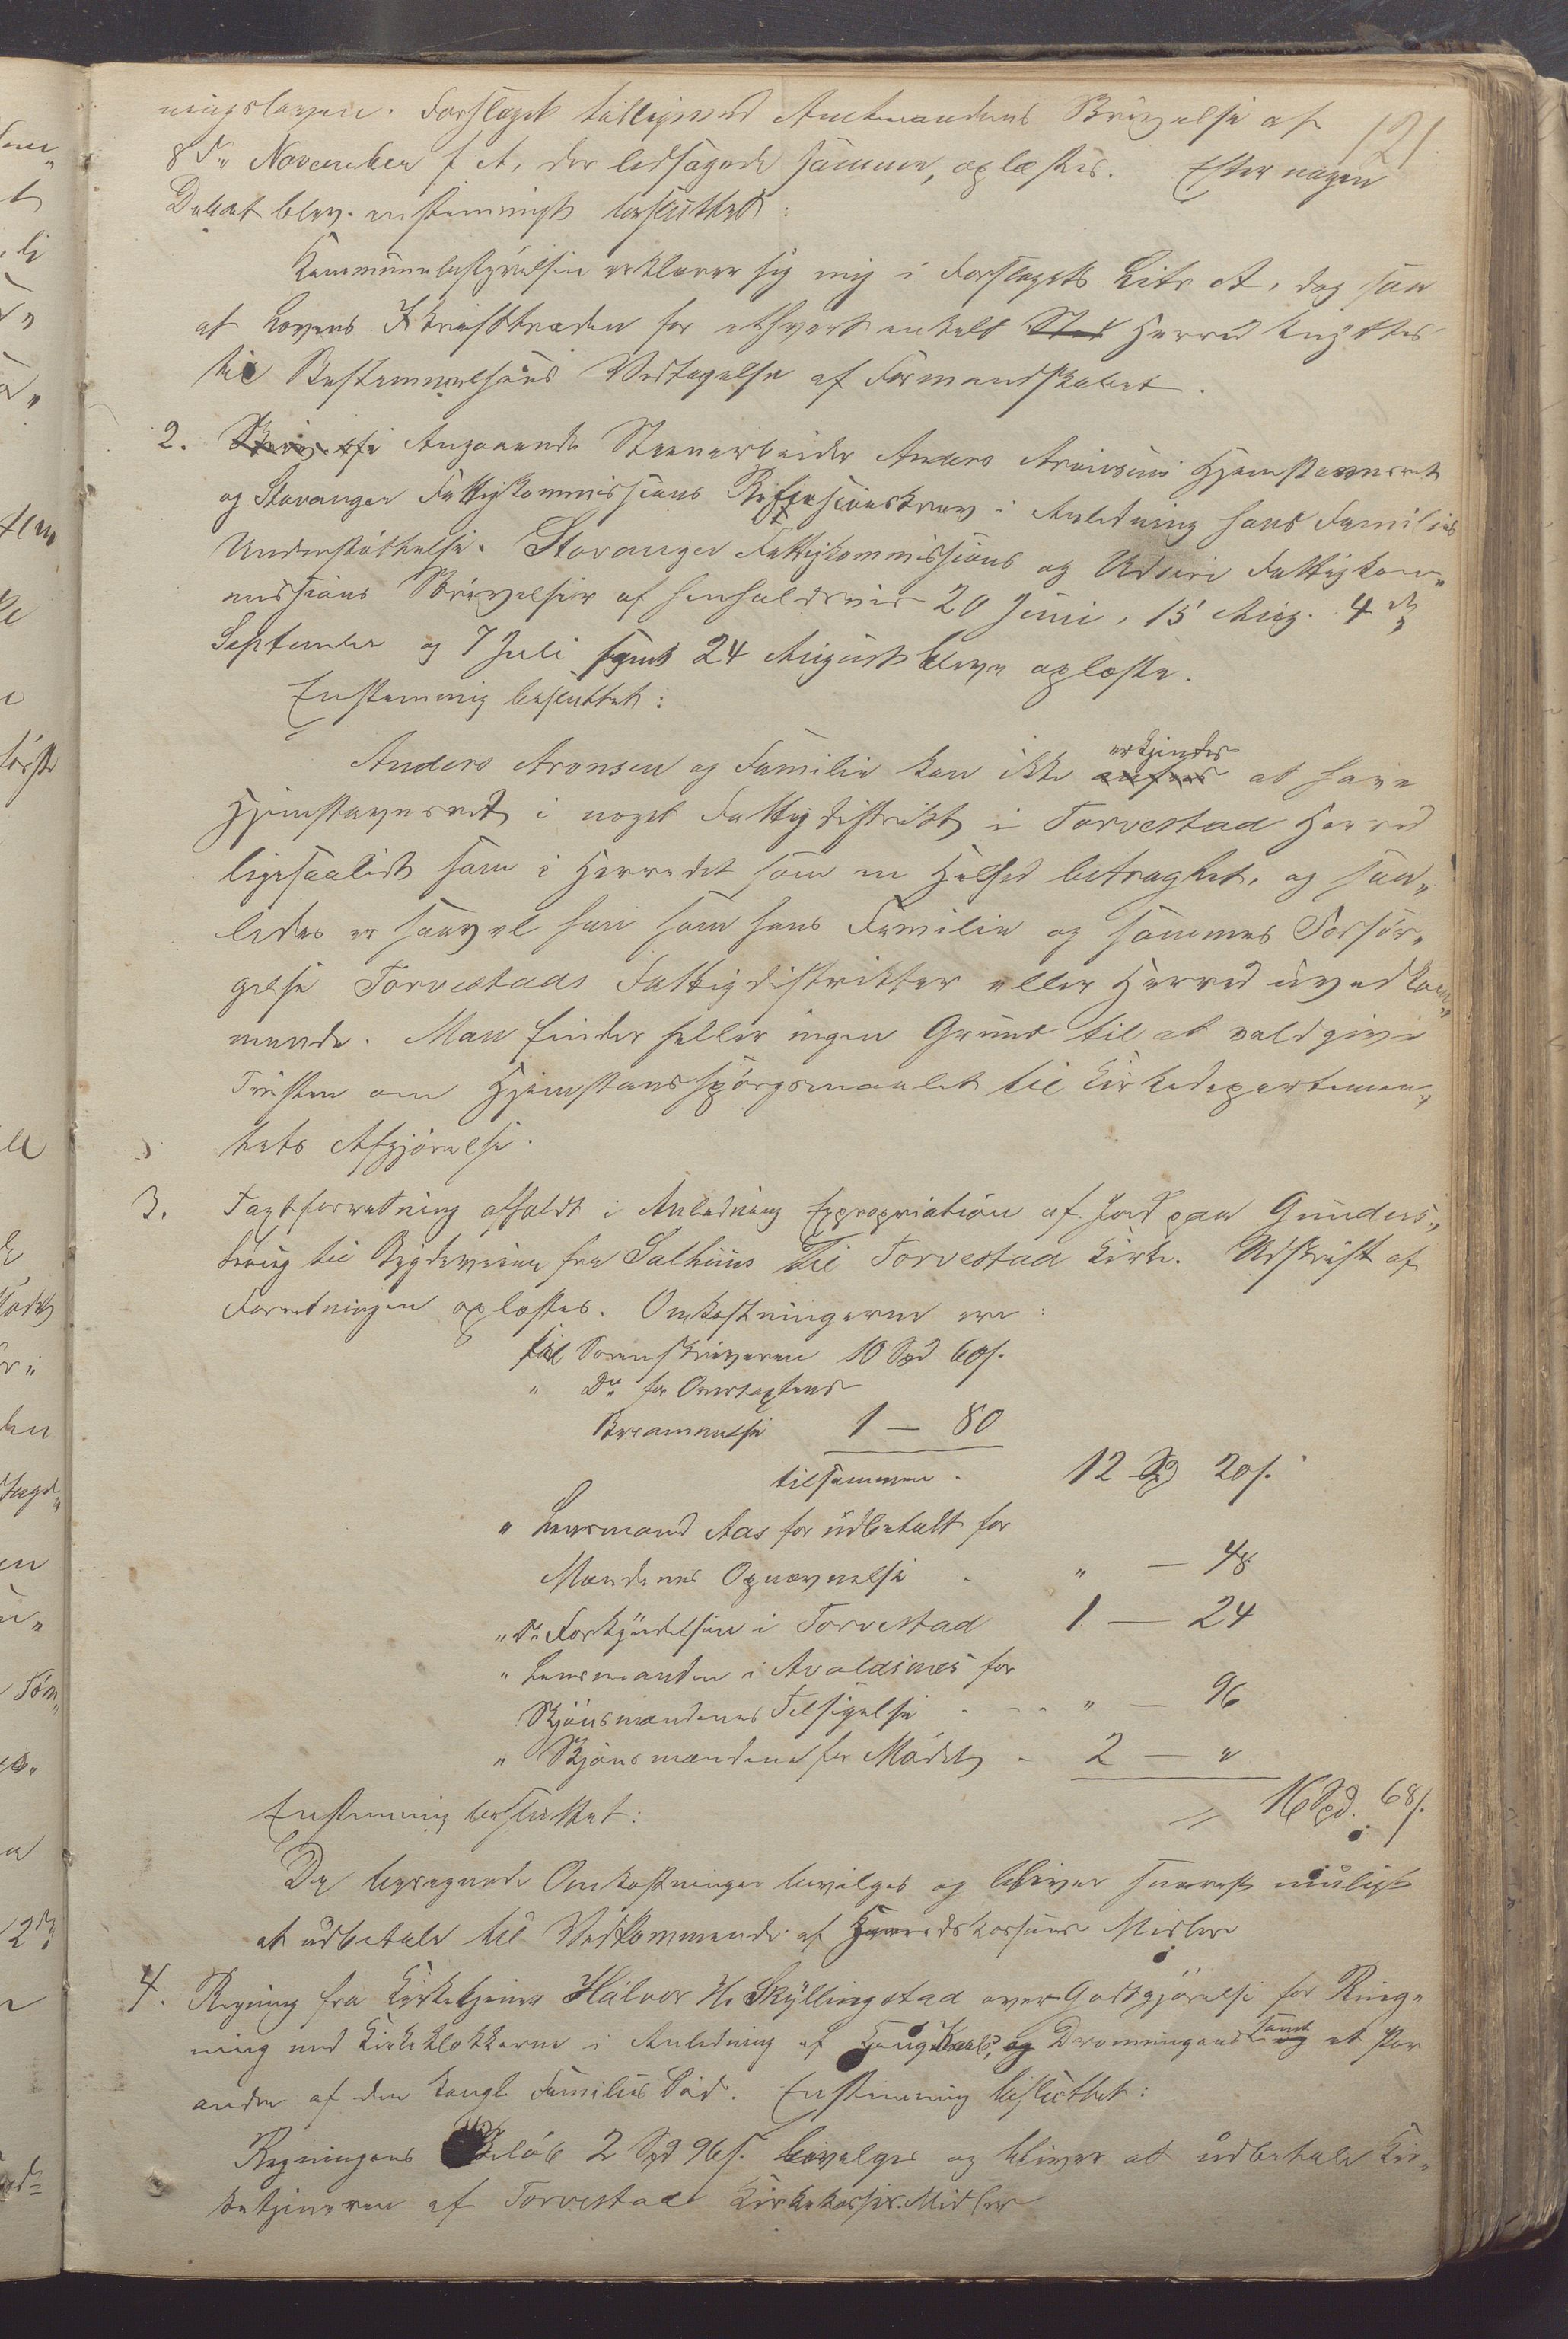 121.
ningslagene. Forslaget tilligemed Amtmandens Skrivelse af
8de November f. A., der ledsagede samme, oplæstes. Efter nogen
Debat blev enstemmigt besluttet:
Kommunebestyrelsen erklærer sig enig i Forslagets Litr A, dog saa
at Lovens Ikrafttræden for ethvert enkelt Sted Herred knyttes
til Bestemmelsens Vedtagelse af Formandskabet.
2. Skrivelse Angaaende Steenarbeider Anders Aronsens Hjemstavnsret
og Stavanger Fattigkommissions Refusionskrav i Anledning hans Families
Understøttelse. Stavanger Fattigkommissions og Udsire Fattigkom„
missions Skrivelser af henholdsvis 20 Juni, 15 Aug. 4de
September og 7 Juli samt 24 August bleve oplæste.
Enstemmig besluttet:
Anders Aronsen og Familie kan ikke ansees erkjendes at have
Hjemstavnsret i noget Fattigdistrikt i Torvestad Herred
ligesaalidt som i Herredet som en Helhed betragtet, og saa„
ledes er saavel han som hans Familie og sammes Forsør„
gelse Torvestads Fattigdistrikter eller Herred uvedkom„
mende. Man finder heller ingen Grund til at voldgive
Tvisten om Hjemstavnsspørgsmaalet til Kirkedepartemen„
tets Afgjørelse.
3. Taxtforretning afholdt i Anledning Expropriation af Jord paa Gunders„
haug til Bygdeveien fra Salhuus til Torvestad Kirke. Udskrift af
Forretningen oplæstes. Omkostningerne ere:
til Sorenskriveren 10 Spd 60 s.
" Do for Overtaxtens
Berammelse 1 – 80
tilsammen . 12 Spd 20 s.
" Lensmand Aas for udbetalt for
Mændenes Opnævnelse . " – 48
" Do Forkyndelsen i Torvestad 1 – 24
" Lensmanden i Avaldsnes for
Skjønsmændenes Tilsigelse . . . " – 96
" Skjønsmændene for Mødet . 2 – "
= 16 Spd. 68 s.
Enstemmig besluttet:
De beregnede Omkostninger bevilges og bliver snarest muligt
at udbetale til Vedkommende af Herredskassens Midler
4. Regning fra Kirketjener Halvor H. Skyllingstad over Godtgjørelse for Ring„
ning med Kirkeklokkerne i Anledning af Kong Karls, og Dronningens samt og et Par
andre af den kongl. Families Død. Enstemmig besluttet:
Regningens Beløb 2 Spd 96 s. bevilges og bliver at udbetale Kir„
ketjeneren af Torvestad Kirkekasses Midler